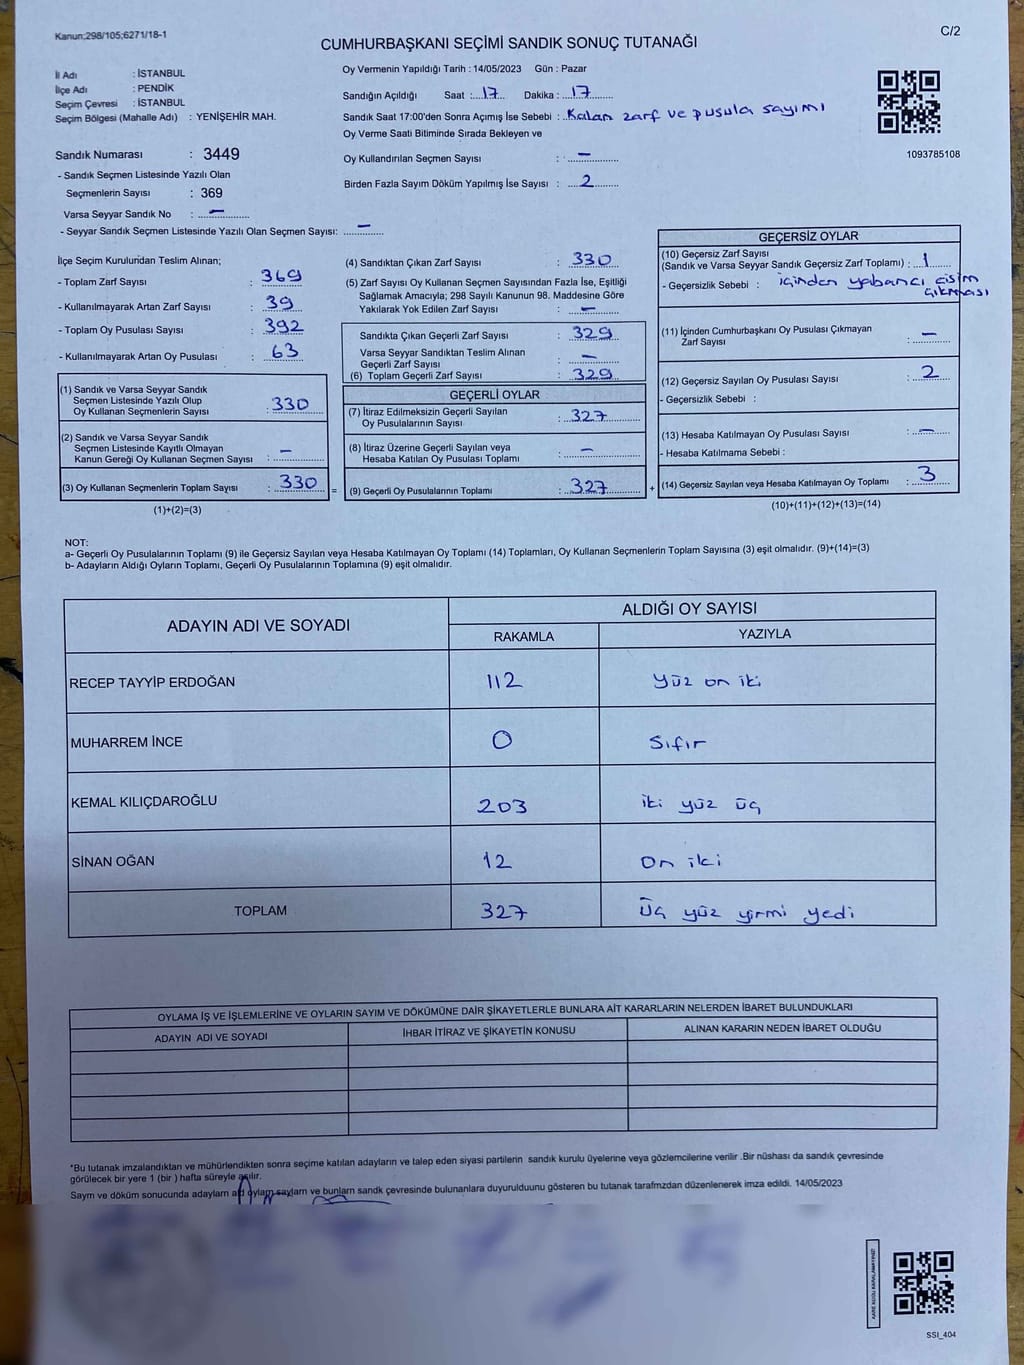 Kanun;298/105;6271/18-1
C/2
CUMHURBAŞKANI SEÇİMİ SANDIK SONUÇ TUTANAĞI
İl Adı : İSTANBUL
İlçe Adı : PENDİK
Seçim Çevresi : İSTANBUL
Seçim Bölgesi (Mahalle Adı) : YENİŞEHİR MAH.
Oy Vermenin Yapıldığı Tarih : 14/05/2023 Gün : Pazar
Sandığın Açıldığı Saat : 17 Dakika : 17
Sandık Saat 17:00'den Sonra Açımış İse Sebebi : Kalan zarf ve pusula sayımı
Oy Verme Saati Bitiminde Sırada Bekleyen ve
Oy Kullandırılan Seçmen Sayısı : –
Birden Fazla Sayım Döküm Yapılmış İse Sayısı : 2
1093785108
Sandık Numarası : 3449
- Sandık Seçmen Listesinde Yazılı Olan
Seçmenlerin Sayısı : 369
Varsa Seyyar Sandık No : –
- Seyyar Sandık Seçmen Listesinde Yazılı Olan Seçmen Sayısı: –
İlçe Seçim Kurulundan Teslim Alınan;
- Toplam Zarf Sayısı : 369
- Kullanılmayarak Artan Zarf Sayısı : 39
- Toplam Oy Pusulası Sayısı : 392
- Kullanılmayarak Artan Oy Pusulası : 63
(1) Sandık ve Varsa Seyyar Sandık
Seçmen Listesinde Yazılı Olup
Oy Kullanan Seçmenlerin Sayısı : 330
(2) Sandık ve Varsa Seyyar Sandık
Seçmen Listesinde Kayıtlı Olmayan
Kanun Gereği Oy Kullanan Seçmen Sayısı : –
(3) Oy Kullanan Seçmenlerin Toplam Sayısı : 330
(1)+(2)=(3)
=
(4) Sandıktan Çıkan Zarf Sayısı : 330
(5) Zarf Sayısı Oy Kullanan Seçmen Sayısından Fazla İse, Eşitliği
Sağlamak Amacıyla; 298 Sayılı Kanunun 98. Maddesine Göre
Yakılarak Yok Edilen Zarf Sayısı : –
Sandıkta Çıkan Geçerli Zarf Sayısı : 329
Varsa Seyyar Sandıktan Teslim Alınan
Geçerli Zarf Sayısı : –
(6) Toplam Geçerli Zarf Sayısı : 329
GEÇERLİ OYLAR
(7) İtiraz Edilmeksizin Geçerli Sayılan
Oy Pusulalarının Sayısı : 327
(8) İtiraz Üzerine Geçerli Sayılan veya
Hesaba Katılan Oy Pusulası Toplamı : –
(9) Geçerli Oy Pusulalarının Toplamı : 327
+
GEÇERSİZ OYLAR
(10) Geçersiz Zarf Sayısı
(Sandık ve Varsa Seyyar Sandık Geçersiz Zarf Toplamı) : 1
- Geçersizlik Sebebi : içinden yabancı cisim
çıkması
(11) İçinden Cumhurbaşkanı Oy Pusulası Çıkmayan
Zarf Sayısı : –
(12) Geçersiz Sayılan Oy Pusulası Sayısı : 2
- Geçersizlik Sebebi :
(13) Hesaba Katılmayan Oy Pusulası Sayısı : –
- Hesaba Katılmama Sebebi :
(14) Geçersiz Sayılan veya Hesaba Katılmayan Oy Toplamı : 3
(10)+(11)+(12)+(13)=(14)
NOT:
a- Geçerli Oy Pusulalarının Toplamı (9) ile Geçersiz Sayılan veya Hesaba Katılmayan Oy Toplamı (14) Toplamları, Oy Kullanan Seçmenlerin Toplam Sayısına (3) eşit olmalıdır. (9)+(14)=(3)
b- Adayların Aldığı Oyların Toplamı, Geçerli Oy Pusulalarının Toplamına (9) eşit olmalıdır.
ADAYIN ADI VE SOYADI
ALDIĞI OY SAYISI
RAKAMLA YAZIYLA
RECEP TAYYİP ERDOĞAN 112 Yüz on iki
MUHARREM İNCE 0 Sıfır
KEMAL KILIÇDAROĞLU 203 iki yüz üç
SİNAN OĞAN 12 On iki
TOPLAM 327 Üç yüz yirmi yedi
OYLAMA İŞ VE İŞLEMLERİNE VE OYLARIN SAYIM VE DÖKÜMÜNE DAİR ŞİKAYETLERLE BUNLARA AİT KARARLARIN NELERDEN İBARET BULUNDUKLARI
ADAYIN ADI VE SOYADI İHBAR İTİRAZ VE ŞİKAYETİN KONUSU ALINAN KARARIN NEDEN İBARET OLDUĞU
*Bu tutanak imzalandıktan ve mühürlendikten sonra seçime katılan adayların ve talep eden siyasi partilerin sandık kurulu üyelerine veya gözlemcilerine verilir .Bir nüshası da sandık çevresinde
görülecek bir yere 1 (bir ) hafta süreyle asılır.
Sayım ve döküm sonucunda adayların ve bunların sandık çevresinde bulunanlara duyurulduunu gösteren bu tutanak tarafmzdan düzenlenerek imza edildi. 14/05/2023
SSI_404